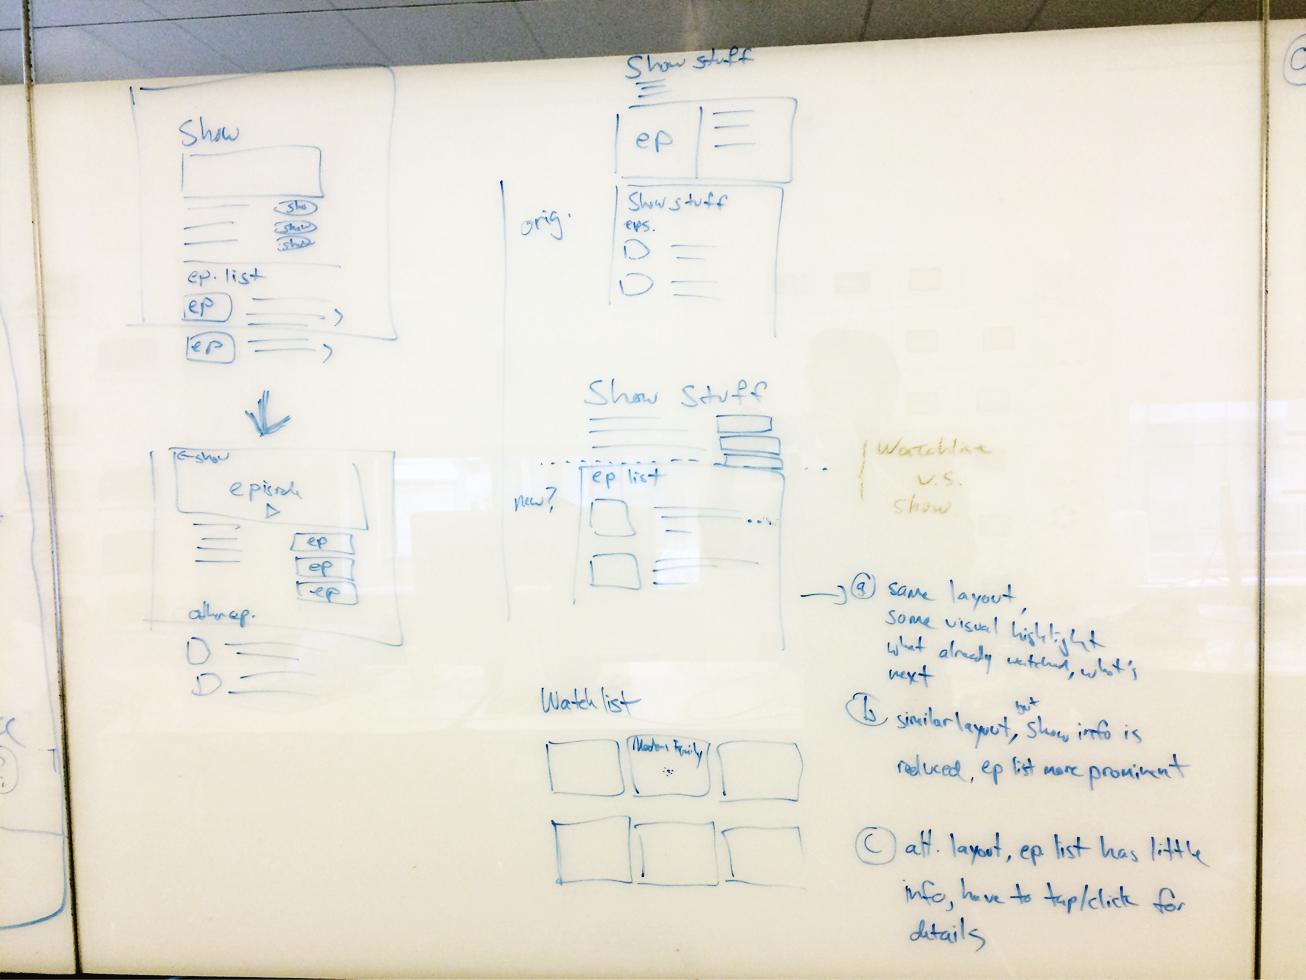 Show
sho
show
show
ep. list
ep
ep
←show
episode
ep
ep
ep
other ep.
Show stuff
ep
orig.
Show stuff
eps.
Show Stuff
ep list
new?
Watchlist
v.s.
show
Watchlist
Modern Family
→ a same layout,
some visual highlight
what already watched, what's
next
b similar layout, but show info is
reduced, ep list more prominent
c alt. layout, ep list has little
info, have to tap/click for
details